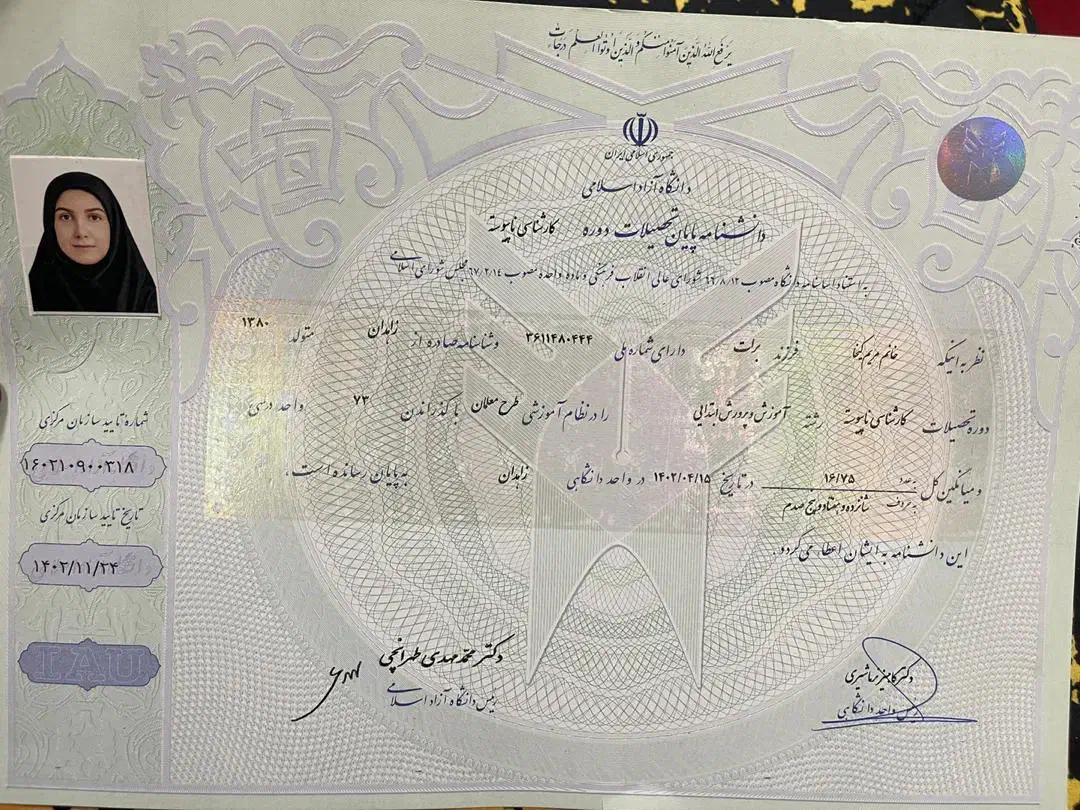 یرفع الله الذین آمنوا منکم و الذین اوتوا العلم درجات
جمهوری اسلامی ایران
دانشگاه آزاد اسلامی
دانشنامه پایان تحصیلات دوره کارشناسی ناپیوسته
به استناد اساسنامه دانشگاه مصوب ۶۶/۸/۱۲ شورای عالی انقلاب فرهنگی و ماده واحده مصوب ۶۷/۲/۱۴ مجلس شورای اسلامی
نظر به اینکه خانم مریم کیخا فرزند برات دارای شماره ملی ۳۶۱۱۴۸۰۴۴۴ و شناسنامه صادره از زاهدان متولد ۱۳۸۰
دوره تحصیلات کارشناسی ناپیوسته رشته آموزش و پرورش ابتدایی را در نظام آموزشی طرح معلمان با گذراندن ۷۳ واحد درسی
و میانگین کل به عدد ۱۶/۷۵ در تاریخ ۱۴۰۲/۰۴/۱۵ در واحد دانشگاهی زاهدان به پایان رسانده است.
به حروف شانزده و هفتاد و پنج صدم
این دانشنامه به ایشان اعطا می گردد.
شماره تایید سازمان مرکزی
۱۶۰۲۱۰۹۰۰۳۱۸
تاریخ تایید سازمان مرکزی
۱۴۰۲/۱۱/۲۴
IAU
دکتر محمد مهدی طهرانچی
رییس دانشگاه آزاد اسلامی
دکتر
رییس واحد دانشگاهی